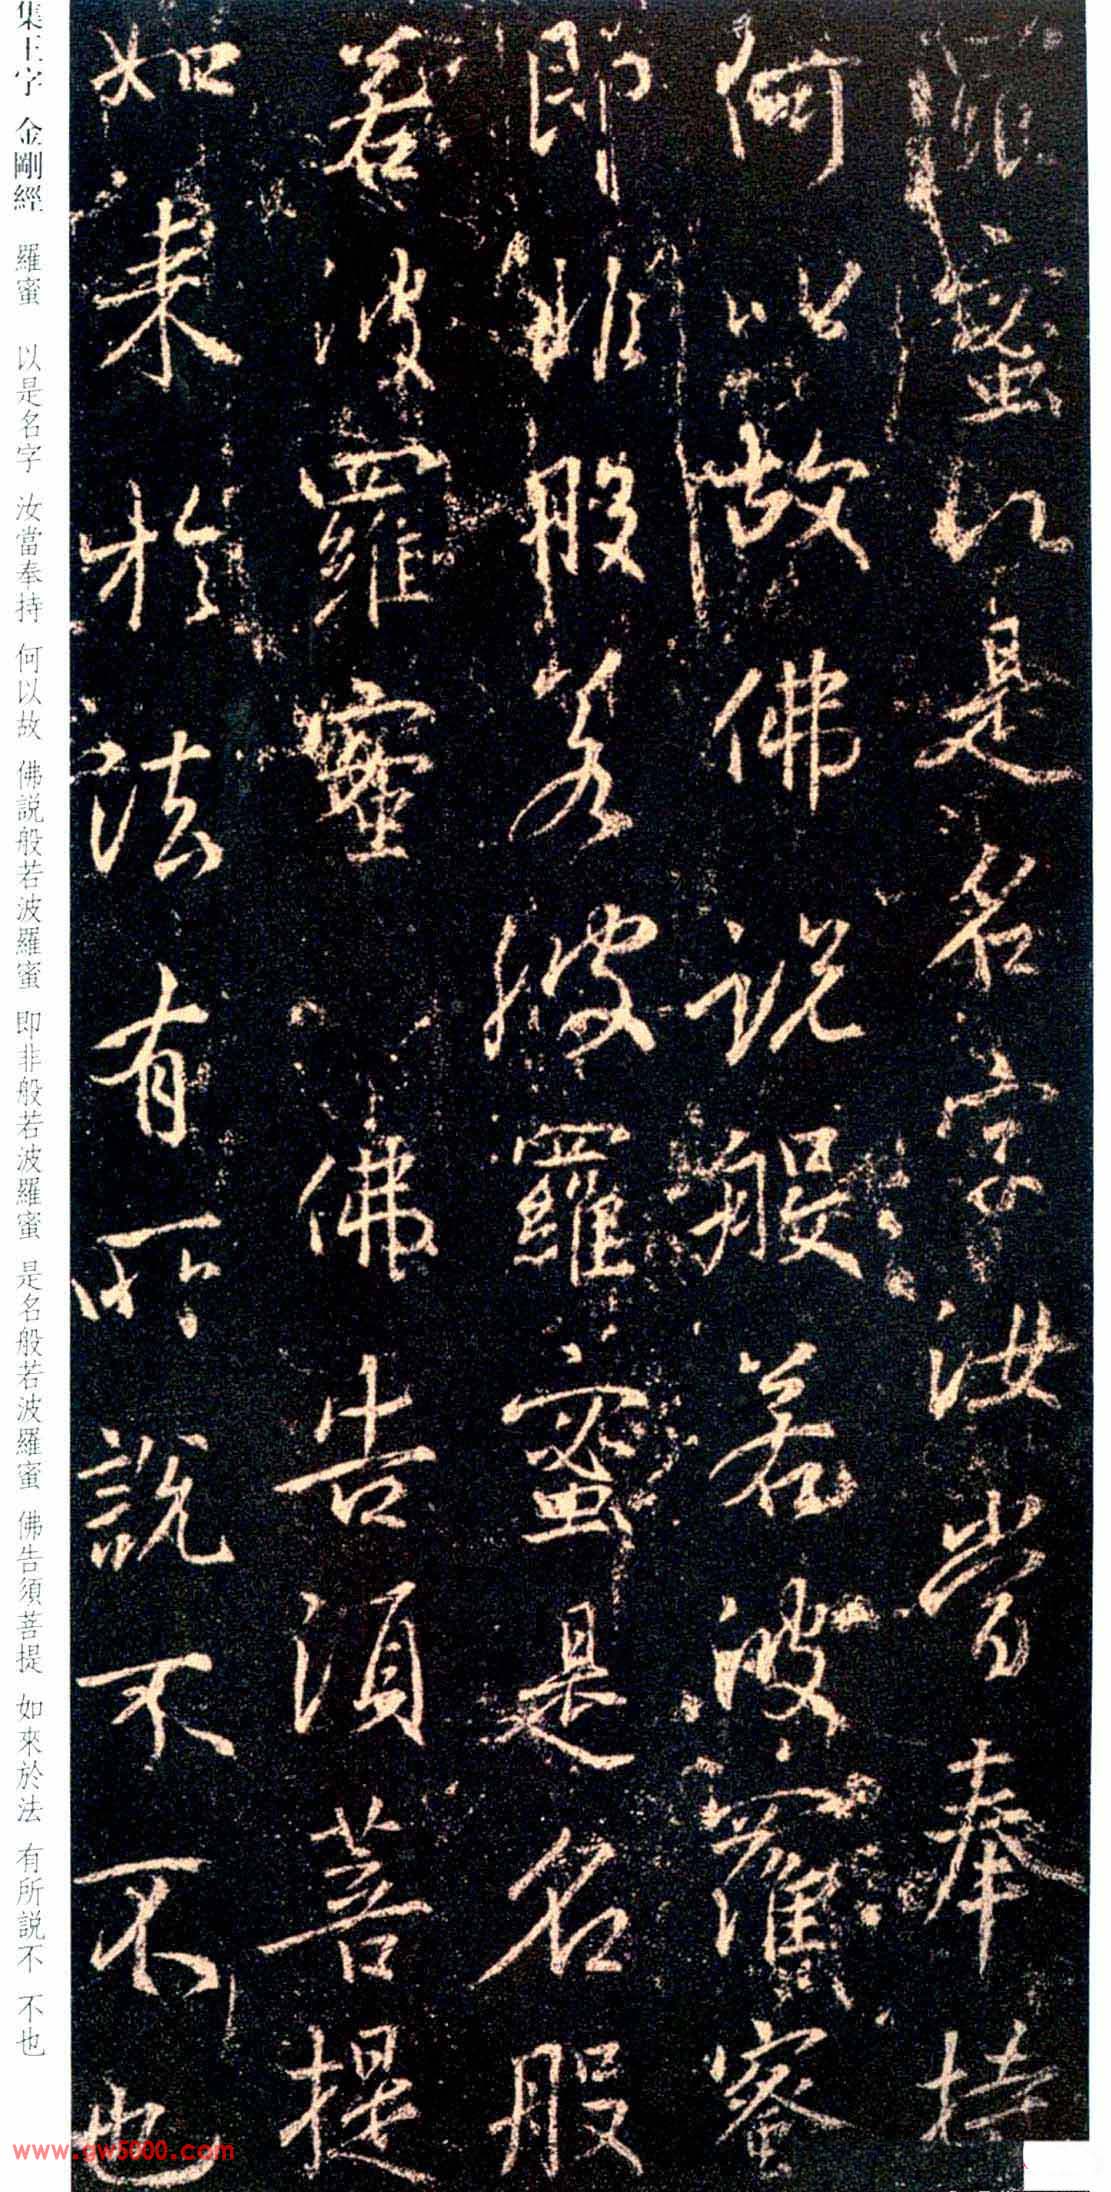 羅蜜以是名字汝當奉持
何以故佛說般若波羅蜜
即非般若波羅蜜是名般
若波羅蜜佛告須菩提
如来於法有所說不不也
集王字 金剛經 羅蜜 以是名字 汝當奉持 何以故 佛説般若波羅蜜 即非般若波羅蜜 是名般若波羅蜜 佛告須菩提 如來於法 有所説不 不也
www.gw5000.com